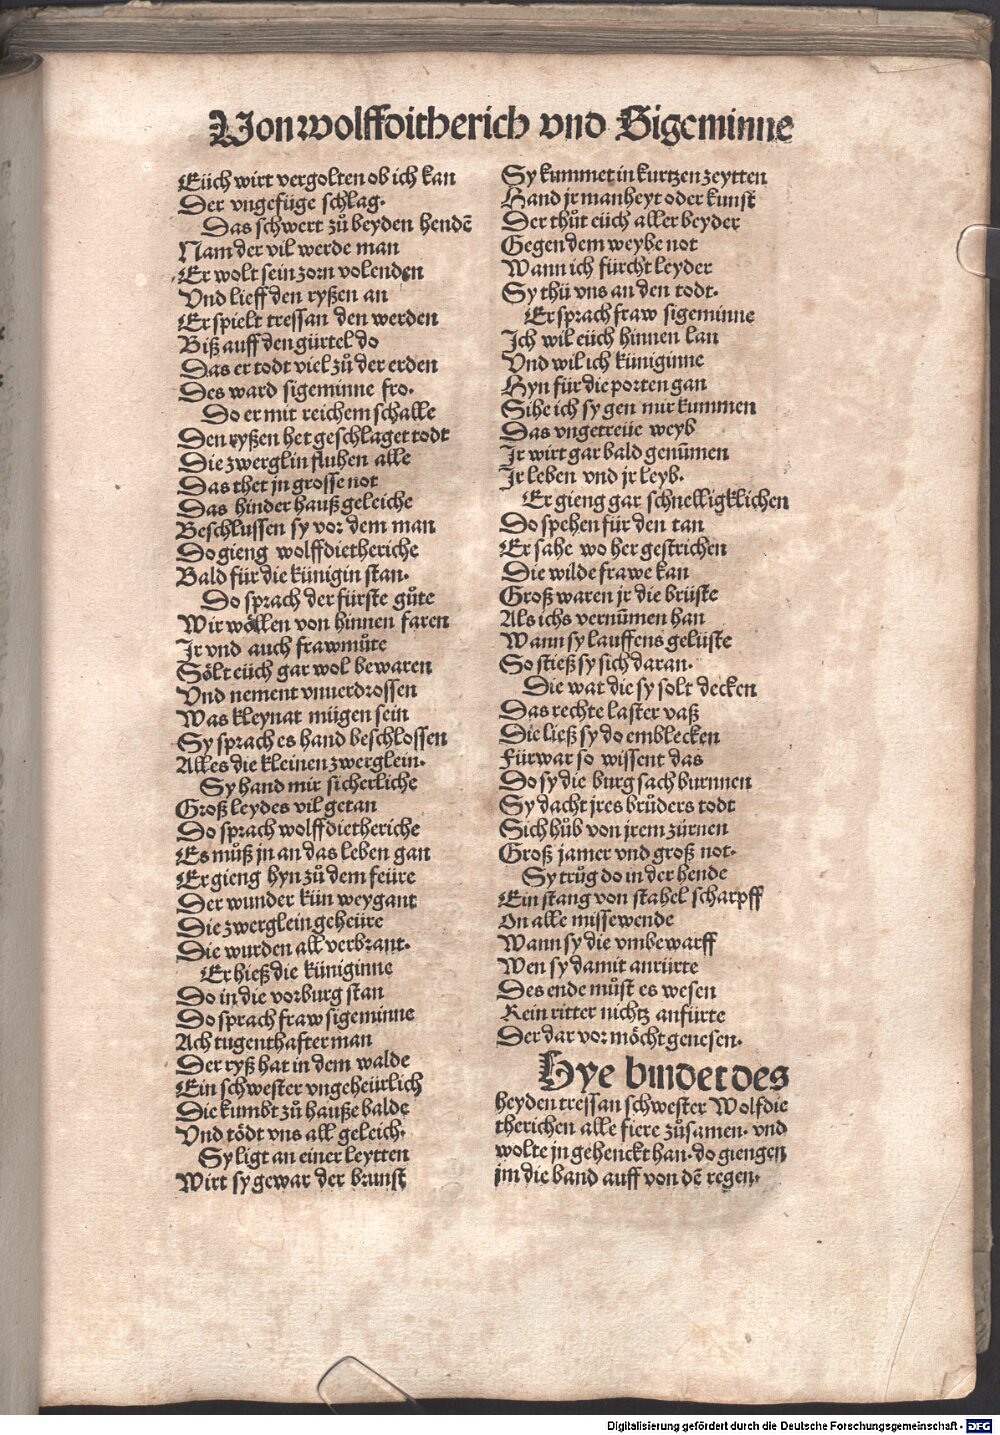 Von wolffditherich vnd Sigeminne
Eüch wirt vergolten ob ich kan
Der vngefüge schlag.
Das schwert zů beyden hendẽ
Nam der vil werde man
Er wolt sein zorn volenden
Vnd lieff den ryßen an
Er spielt tressan den werden
Biß auff den gürtel do
Das er todt viel zů der erden
Des ward sigeminne fro.
Do er mit reichem schalle
Den ryßen het geschlaget todt
Die zwerglin fluhen alle
Das thet jn grosse not
Das hinder hauß geleiche
Beschlussen sy vor dem man
Do gieng wolffdietheriche
Bald für die künigin stan.
Do sprach der fürste gůte
Wir wöllen von hinnen faren
Jr vnd auch frawmůte
Sölt eüch gar wol bewaren
Vnd nement vnuerdrossen
Was kleynat mügen sein
Sy sprach es hand beschlossen
Alles die kleinen zwerglein.
Sy hand mir sicherliche
Groß leydes vil getan
Do sprach wolffdietheriche
Es můß jn an das leben gan
Er gieng hyn zů dem feüre
Der wunder kün weygant
Die zwerglein geheüre
Die wurden all verbrant.
Er hieß die küniginne
Do in die vorburg stan
Do sprach fraw sigeminne
Ach tugenthafter man
Der ryß hat in dem walde
Ein schwester vngeheürlich
Die kumbt zů hauße balde
Vnd tödt vns all geleich.
Sy ligt an einer leytten
Wirt sy gewar der brunst
Sy kummet in kurtzen zeytten
Hand jr manheyt oder kunst
Der thůt eüch aller beyder
Gegen dem weybe not
Wann ich fürcht leyder
Sy thü vns an den todt.
Er sprach fraw sigeminne
Jch wil eüch hinnen lan
Vnd wil ich küniginne
Hyn für die porten gan
Sihe ich sy gen mir kummen
Das vngetreüe weyb
Jr wirt gar bald genümen
Jr leben vnd jr leyb.
Er gieng gar schnelligklichen
Do spehen für den tan
Er sahe wo her gestrichen
Die wilde frawe kan
Groß waren jr die brüste
Als ichs vernümen han
Wann sy lauffens gelüste
So stieß sy sich daran.
Die wat die sy solt decken
Das rechte laster vaß
Die ließ sy do emblecken
Fürwar so wissent das
Do sy die burg sach burnnen
Sy dacht jres brůders todt
Sich hůb von jrem zürnen
Groß jamer vnd groß not.
Sy trůg do in der hende
Ein stang von stahel scharpff
On alle missewende
Wann sy die vmbewarff
Wen sy damit anrürte
Des ende můst es wesen
Kein ritter nichtz anfürte
Der dar vor möcht genesen.
Hye bindet des
heyden tressan schwester Wolfdie
therichen alle fiere zůsamen. vnd
wolte jn gehenckt han. do giengen
jm die band auff von dẽ regen.
Digitalisierung gefördert durch die Deutsche Forschungsgemeinschaft - DFG